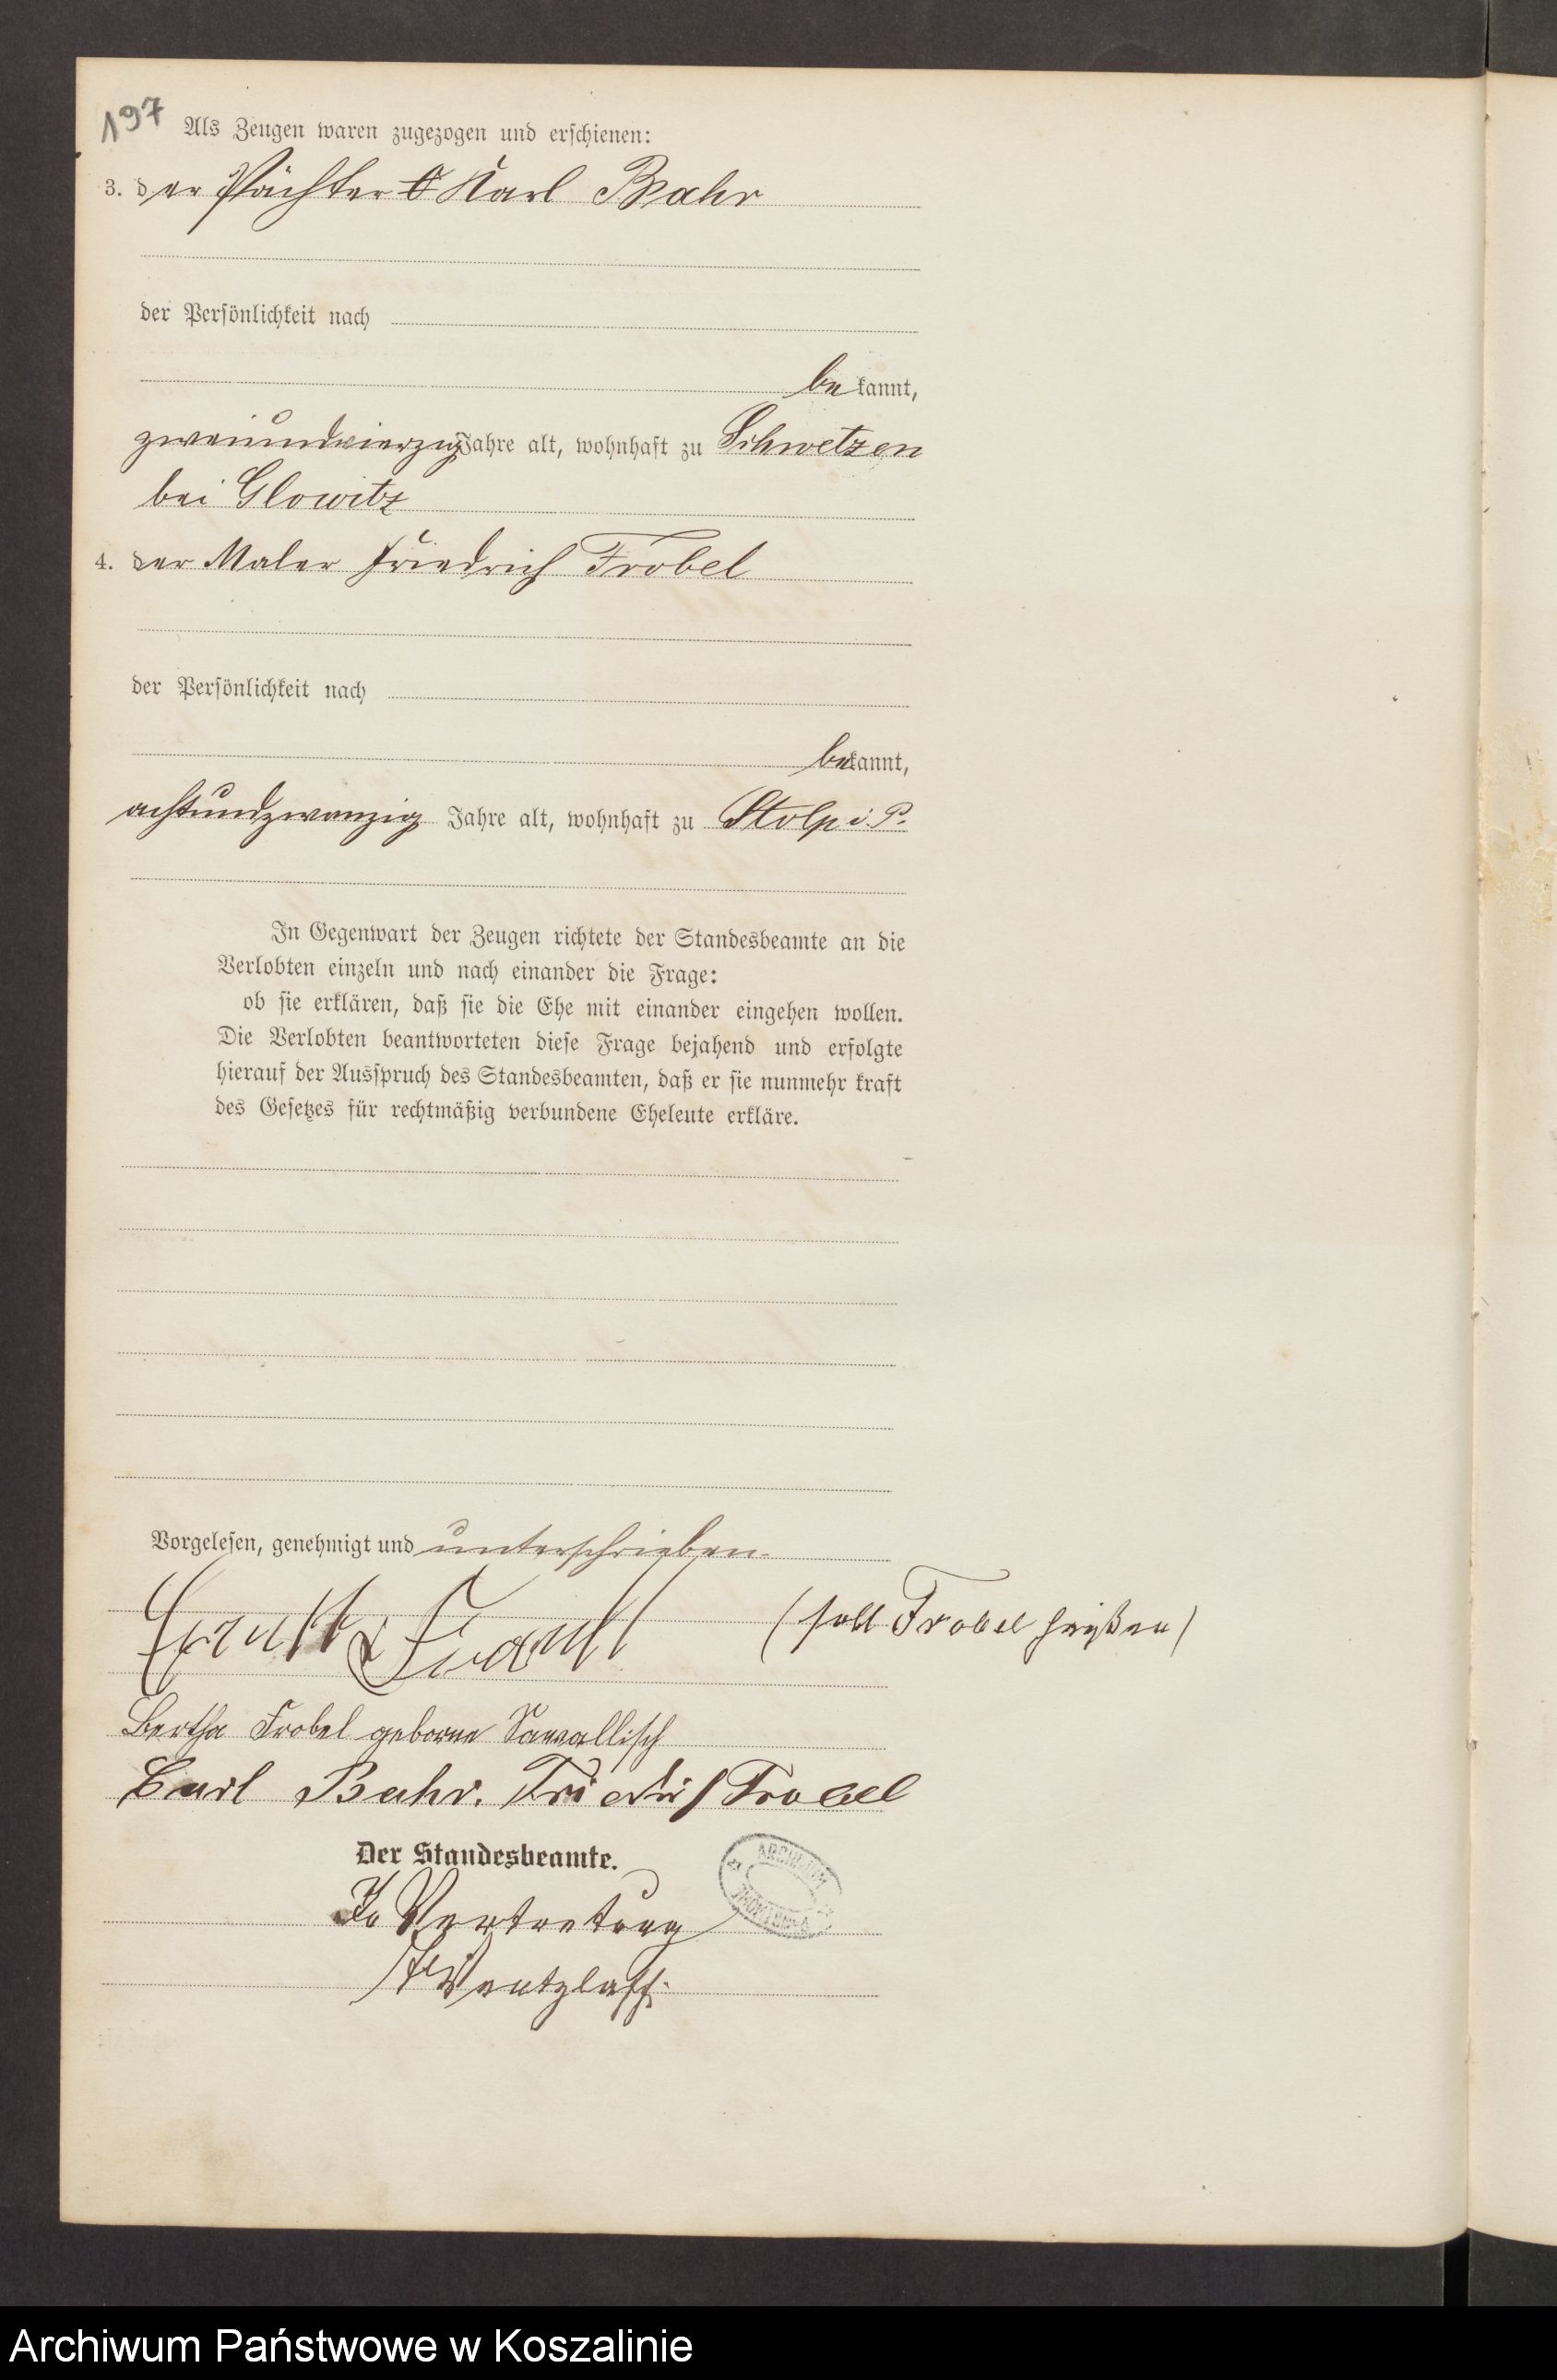 197
Als Zeugen waren zugezogen und erschienen:
3. der Pächter Karl Bahr
der Persönlichkeit nach
bekannt,
zweiundvierzig Jahre alt, wohnhaft zu Schwetzen
bei Glowitz
4. der Maler Friedrich Frobel
der Persönlichkeit nach
bekannt,
achtundzwanzig Jahre alt, wohnhaft zu Stolp i. P.
In Gegenwart der Zeugen richtete der Standesbeamte an die
Verlobten einzeln und nach einander die Frage:
ob sie erklären, daß sie die Ehe mit einander eingehen wollen.
Die Verlobten beantworteten diese Frage bejahend und erfolgte
hierauf der Ausspruch des Standesbeamten, daß er sie nunmehr kraft
des Gesetzes für rechtmäßig verbundene Eheleute erkläre.
Vorgelesen, genehmigt und unterschrieben.
Ernst (soll Frobel heißen)
Bertha Frobel geborne Sawallisch
Carl Bahr. Friedrich Frobel
Der Standesbeamte.
In Vertretung
Wentzlaff.
Archiwum Państwowe w Koszalinie